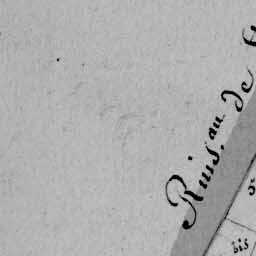 Ruis.au de
bis